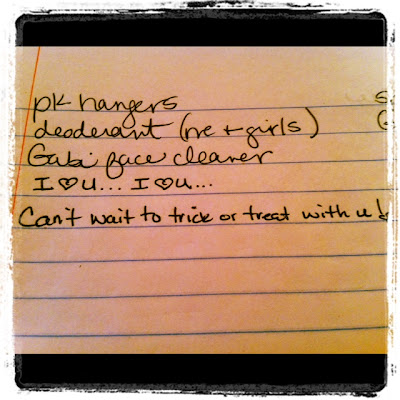 pk hangers
deoderant (me + girls)
Gabi face cleaner
I ♡ u... I ♡ u...
Can't wait to trick or treat with u!